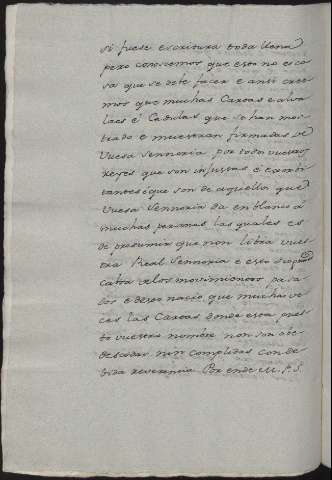 si fuese escritura toda llena
pero conosemos que esto no es co
sa que se debe facer e ansi cree
mos que muchas Cartas e alva
laes é Cedulas que se han mos
trado e muestran firmadas de
Vuesa Sennoria por todos vuestros
reynos que son injustas e exorbi
tantes que son de aquello que
Vuesa Sennoria da en blanco á
muchas personas las quales es
de presumir que non libra vues
tra Real Sennoria e esto
cabra de los movimientos pasa
dos e deso nació que muchas ve
ces las Cartas donde esta pues
to vuestro nombre non son obe
descidas nin complidas con de
bida reverencia Por ende M. P. S.